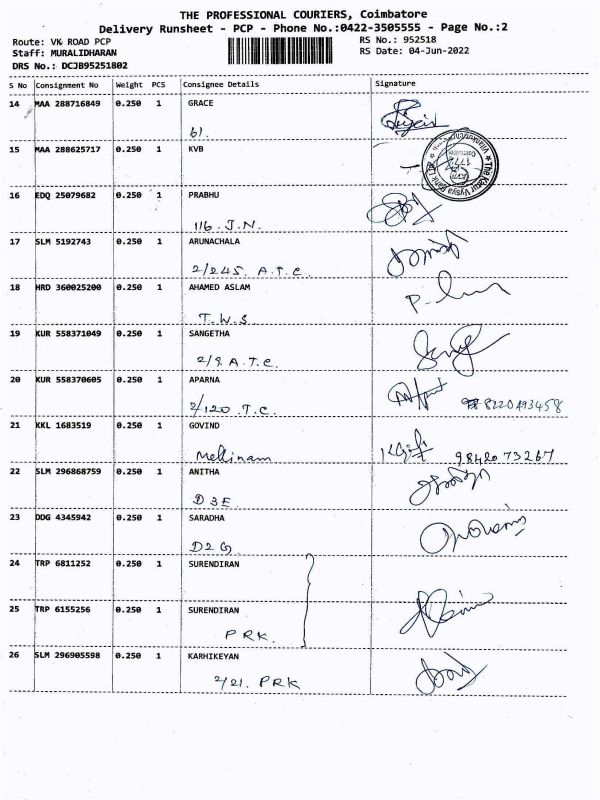 THE PROFESSIONAL COURIERS, Coimbatore
Delivery Runsheet - PCP - Phone No.:0422-3505555 - Page No.:2
Route: VK ROAD PCP RS No.: 952518
Staff: MURALIDHARAN RS Date: 04-Jun-2022
DRS No.: DCJB95251802
S No Consignment No Weight PCS Consignee Details Signature
14 MAA 288716849 0.250 1 GRACE
61.
15 MAA 288625717 0.250 1 KVB
16 EDQ 25079682 0.250 1 PRABHU
116. J.N.
17 SLM 5192743 0.250 1 ARUNACHALA
2/245. A.T.C.
18 HRD 360025200 0.250 1 AHAMED ASLAM
T.W.S
19 KUR 558371049 0.250 1 SANGETHA
2/9 A.T.C.
20 KUR 558370605 0.250 1 APARNA
2/120 .T.C. 8220493458
21 KKL 1683519 0.250 1 GOVIND
9842073267
22 SLM 296868759 0.250 1 ANITHA
D3E.
23 DDG 4345942 0.250 1 SARADHA
D2G.
24 TRP 6811252 0.250 1 SURENDIRAN
25 TRP 6155256 0.250 1 SURENDIRAN
PRK.
26 SLM 296905598 0.250 1 KARHIKEYAN
2/21. PRK